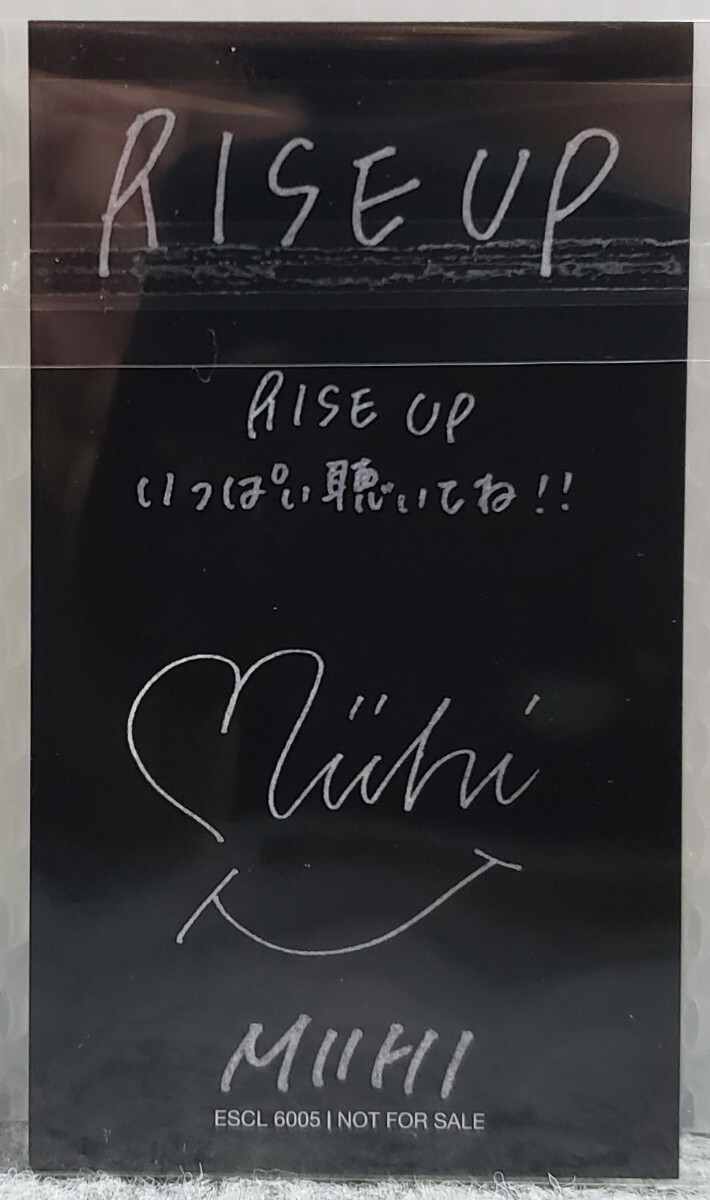 RISE UP
RISE UP
いっぱい聴いてね!!
Miihi
MIIHI
ESCL 6005 | NOT FOR SALE